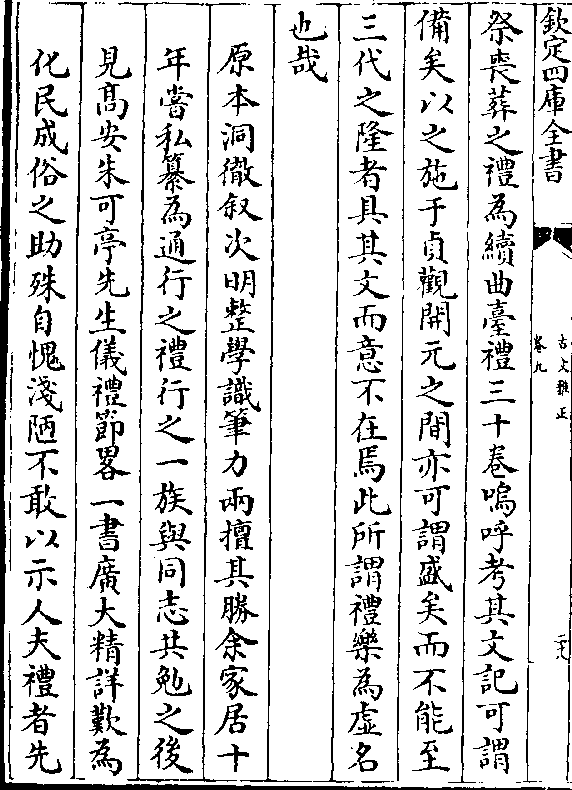 欽定四庫全書
古文雅正
卷九
祭喪葬之禮為續曲臺禮三十卷嗚呼考其文記可謂
備矣以之施于貞觀開元之間亦可謂盛矣而不能至
三代之隆者具其文而意不在焉此所謂禮樂為虛名
也哉
原本洞徹敘次明整學識筆力兩擅其勝余家居十
年嘗私纂為通行之禮行之一族與同志共勉之後
見高安朱可亭先生儀禮節畧一書廣大精詳歎為
化民成俗之助殊自愧淺陋不敢以示人夫禮者先